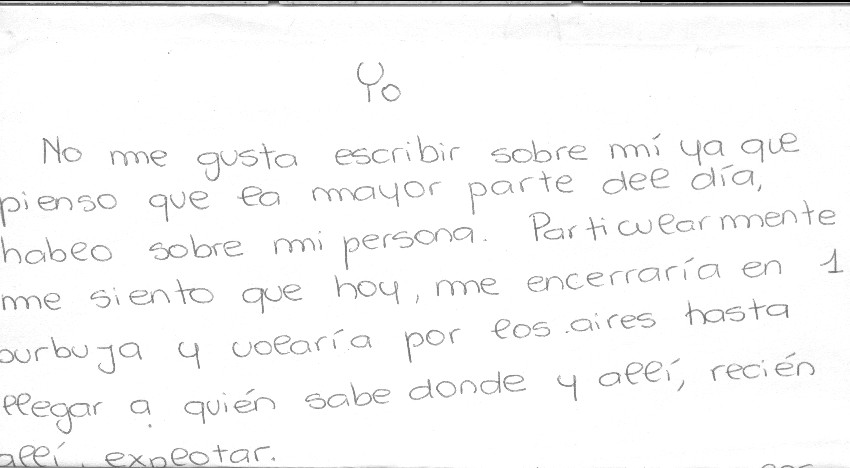 Yo
No me gusta escribir sobre mí ya que
pienso que la mayor parte del día,
hablo sobre mi persona. Particularmente
me siento que hoy, me encerraría en 1
burbuja y volaría por los aires hasta
llegar a quién sabe donde y allí, recién
allí, explotar.